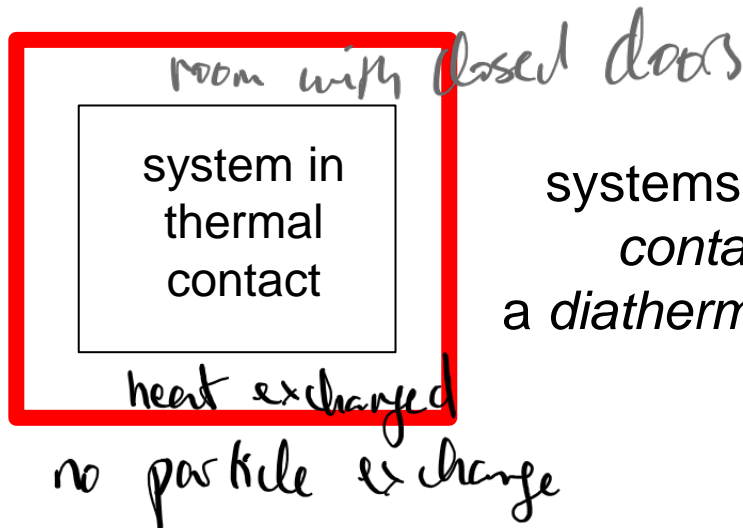 room with closed doors
system in
thermal
contact
systems
conta
a diatherm
heat exchanged
no particle exchange